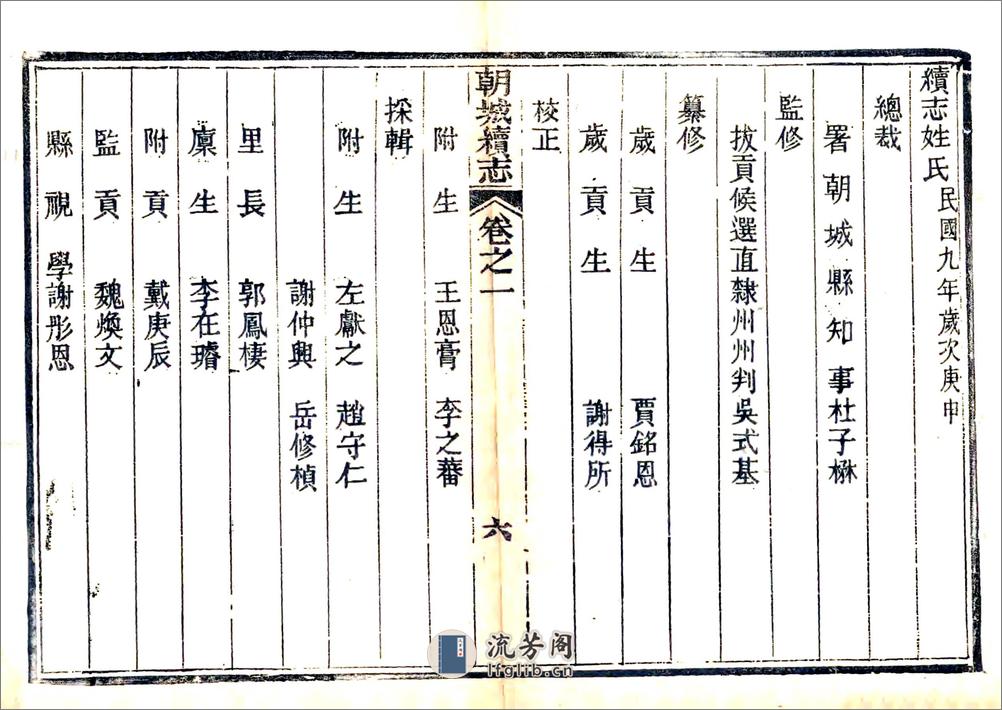 續志姓氏 民國九年歲次庚申
總裁
署朝城縣知事杜子楙
監修
拔貢候選直隸州州判吳式基
纂修
歲貢生 賈銘恩
歲貢生 謝得所
校正
朝城續志 卷之一 六
附生 王恩膏 李之蕃
採輯
附生 左獻之 趙守仁
謝仲興 岳修楨
里長 郭鳳棲
廩生 李在璿
附貢 戴庚辰
監貢 魏煥文
縣視學謝彤恩
流芳阁
lfglib.cn